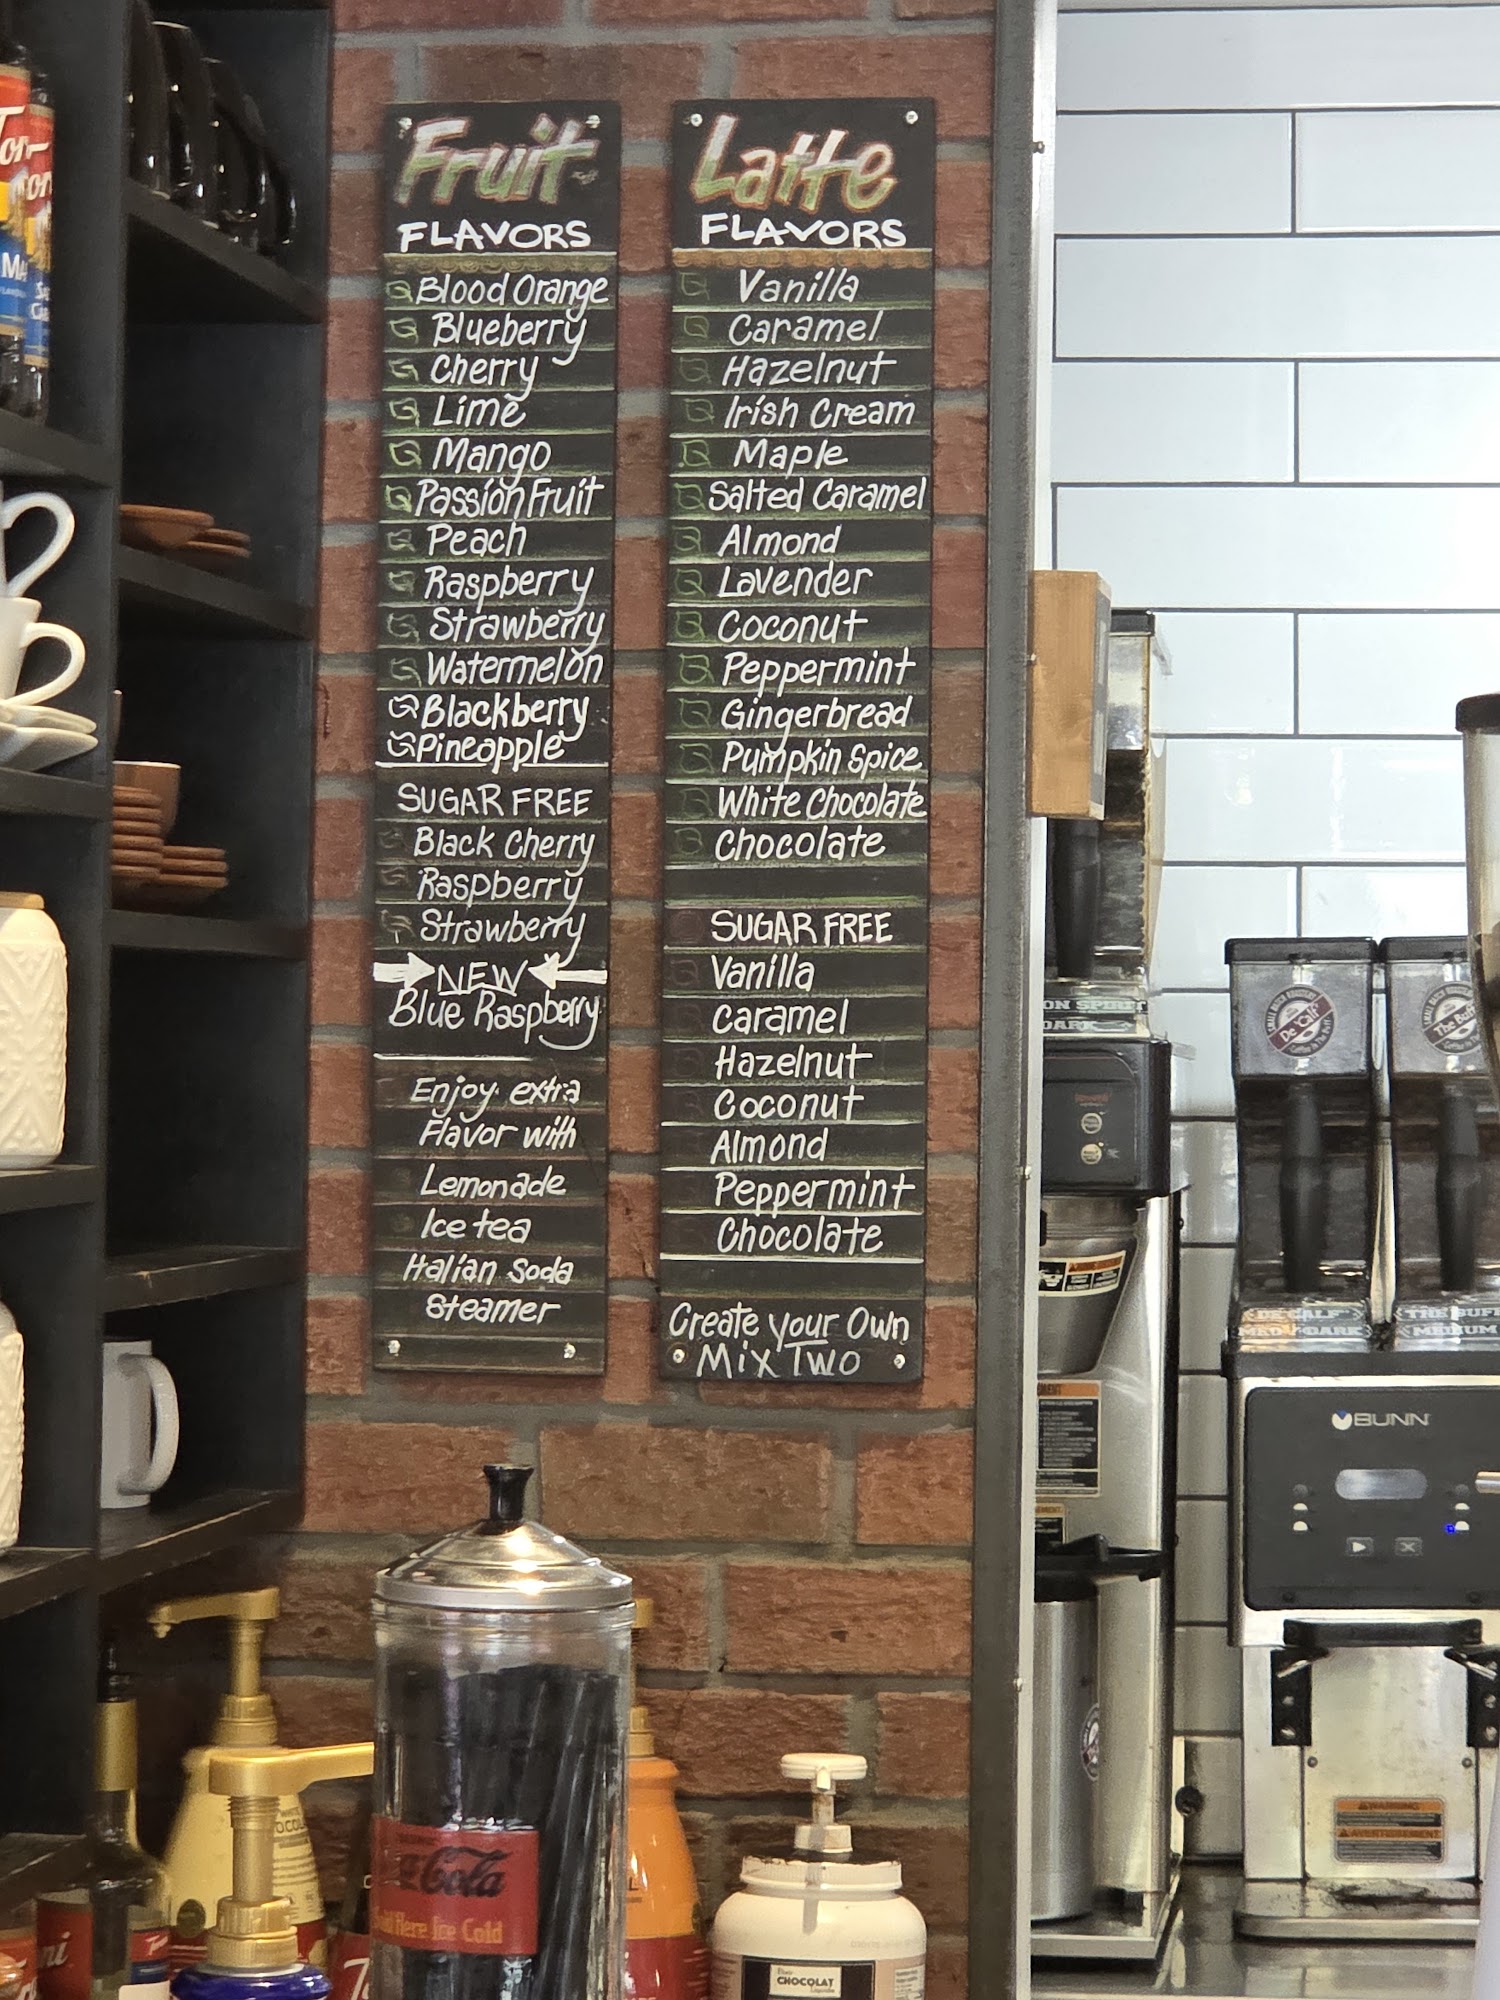 Fruit
FLAVORS
Blood Orange
Blueberry
Cherry
Lime
Mango
Passion Fruit
Peach
Raspberry
Strawberry
Watermelon
Blackberry
Pineapple
SUGAR FREE
Black Cherry
Raspberry
Strawberry
NEW
Blue Raspberry
Enjoy extra
Flavor with
Lemonade
Ice tea
Italian Soda
Steamer
Latte
FLAVORS
Vanilla
Caramel
Hazelnut
Irish Cream
Maple
Salted Caramel
Almond
Lavender
Coconut
Peppermint
Gingerbread
Pumpkin Spice
White Chocolate
Chocolate
SUGAR FREE
Vanilla
Caramel
Hazelnut
Coconut
Almond
Peppermint
Chocolate
Create your Own
Mix Two
DARK
De Calf
The Buff
"DE CALF"
MED/DARK
MEDIUM
BUNN
WARNING
AVERTISSEMENT
Cola
Here Ice Cold
CHOCOLAT